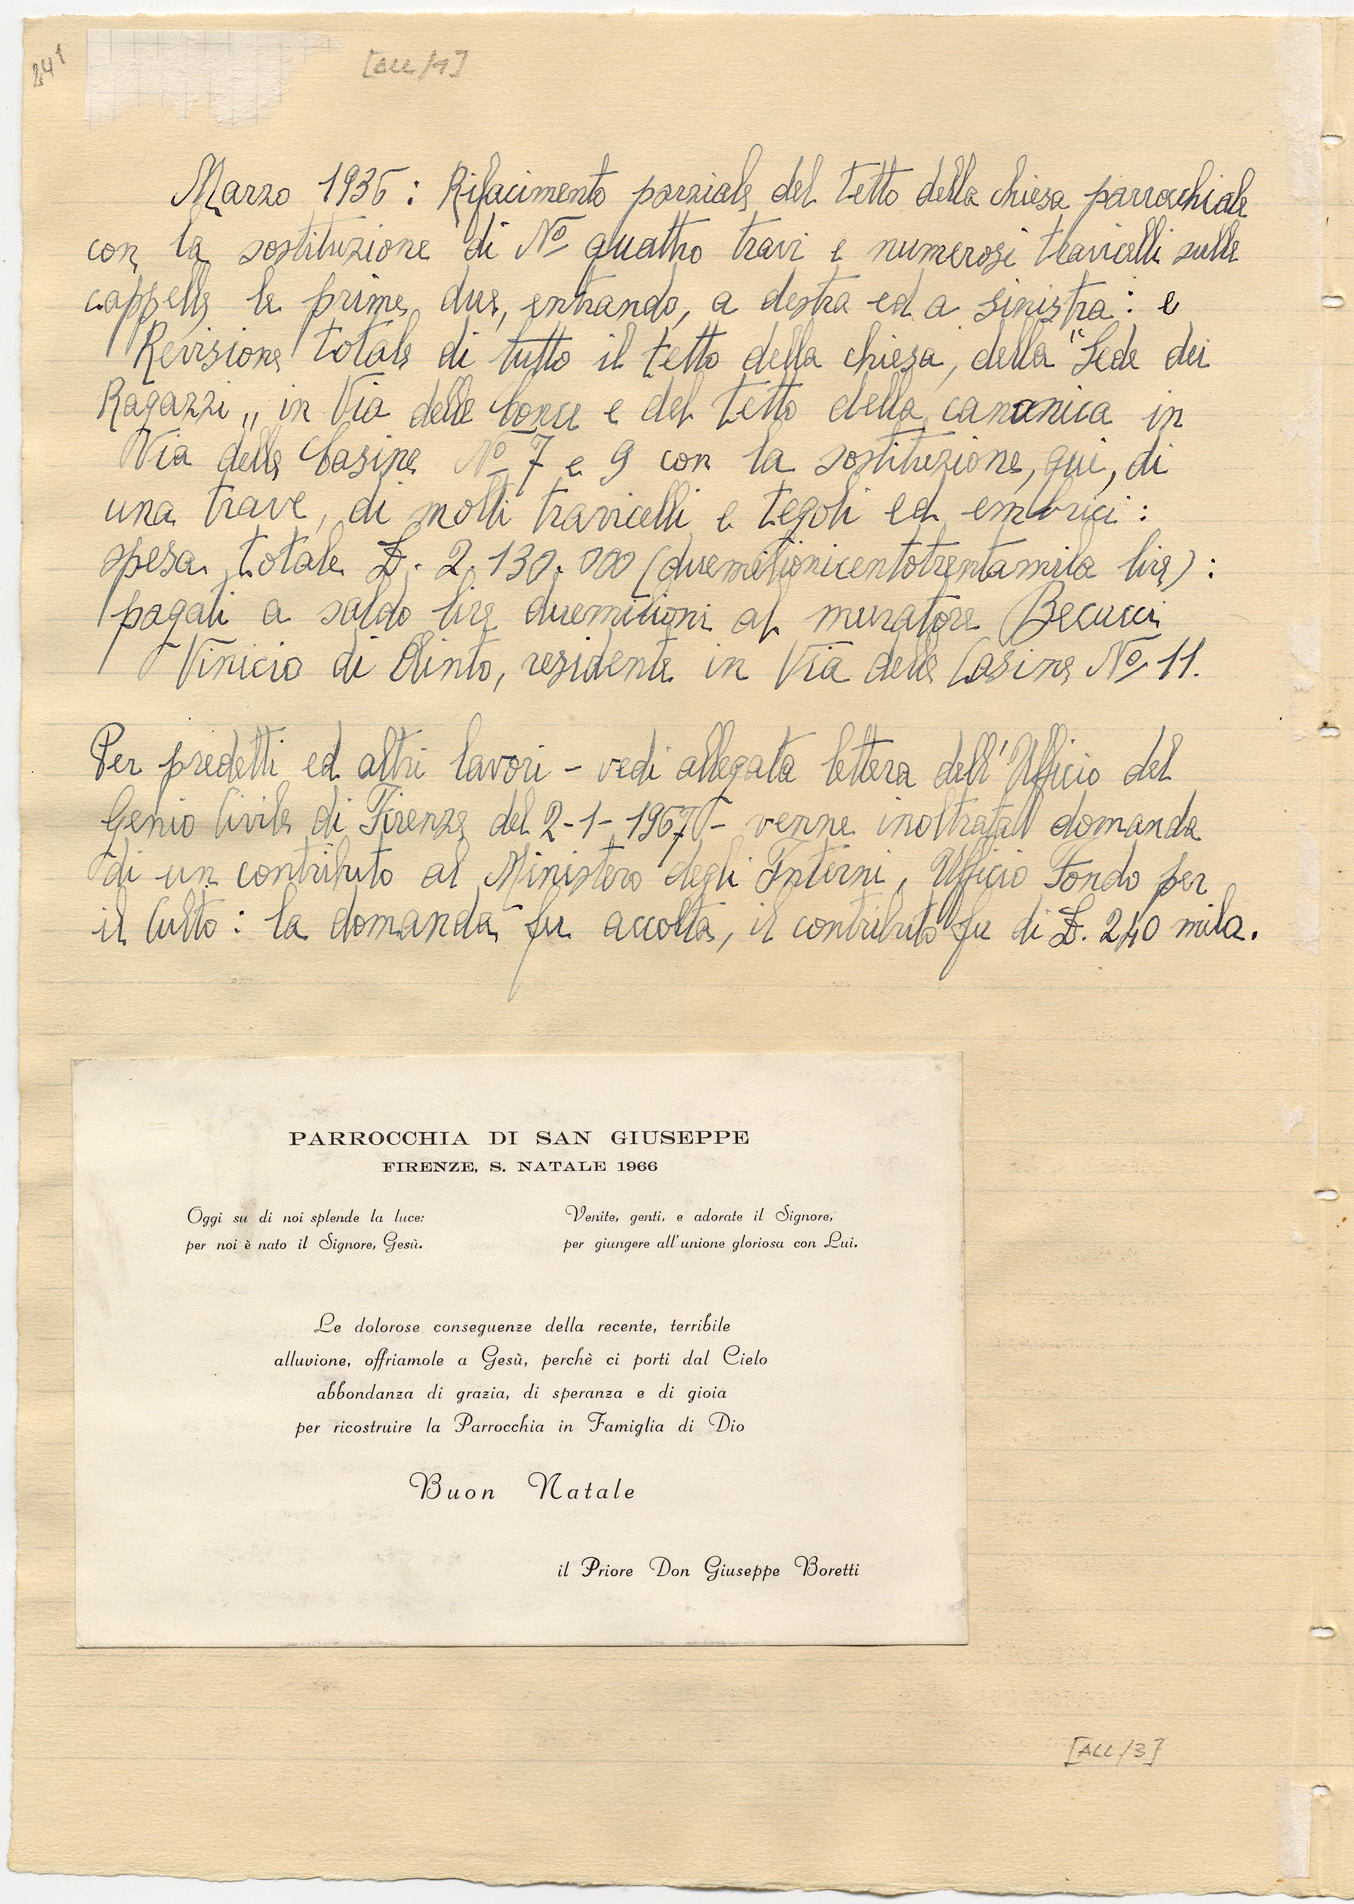 241
[ALL/1]
Marzo 1936: Rifacimento parziale del tetto della chiesa parrocchiale
con la sostituzione di No quattro travi e numerosi travicelli sulle
cappelle le prime due, entrando, a destra ed a sinistra: e
Revisione totale di tutto il tetto della chiesa, della "Sede dei
Ragazzi" in Via delle Conce e del tetto della canonica in
Via delle Casine No 7 e 9 con la sostituzione, qui, di
una trave, di molti travicelli e tegoli ed embrici:
spesa totale £. 2.130.000 (duemilionicentotrentamila lire):
pagati a saldo lire duemilioni al muratore Becucci
Vinicio di Olinto, residente in Via delle Casine No 11.
Per predetti ed altri lavori - vedi allegata lettera dell'Ufficio del
Genio Civile di Firenze del 2-1-1967 - venne inoltrata domanda
di un contributo al Ministero degli Interni, Ufficio Fondo per
il Culto: la domanda fu accolta, il contributo fu di £. 240 mila.
PARROCCHIA DI SAN GIUSEPPE
FIRENZE, S. NATALE 1966
Oggi su di noi splende la luce:
per noi è nato il Signore, Gesù.
Venite, genti, e adorate il Signore,
per giungere all'unione gloriosa con Lui.
Le dolorose conseguenze della recente, terribile
alluvione, offriamole a Gesù, perchè ci porti dal Cielo
abbondanza di grazia, di speranza e di gioia
per ricostruire la Parrocchia in Famiglia di Dio
Buon Natale
il Priore Don Giuseppe Boretti
[ALL/3]